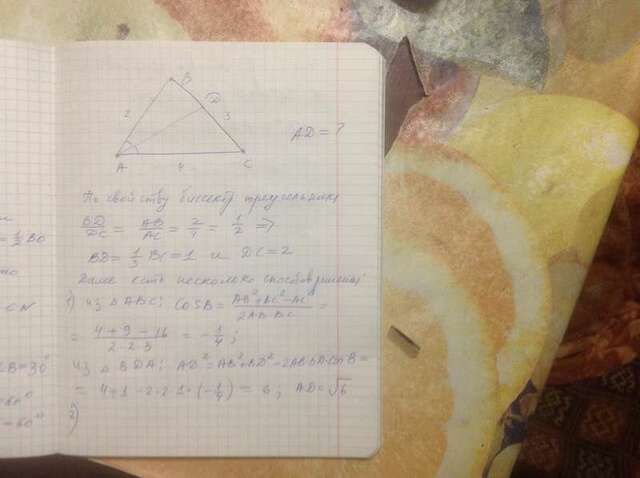 B
D
2
3
AD = ?
A
4
C
По свойству биссектр треугольника
BD/DC = AB/AC = 2/4 = 1/2 =>
BD = 1/3 BC = 1 и DC = 2
Далее есть несколько способов решения:
1) из △ABC; cosB = (AB² + BC² - AC²)/(2AB·BC) =
= (4 + 9 - 16)/(2·2·3) = -1/4;
из △BDA; AD² = AB² + BD² - 2AB·BD·cosB =
= 4 + 1 - 2·2·1·(-1/4) = 6; AD = √6
2)
= 1/2 BO
CN
B = 30°
= 60°
= 60°